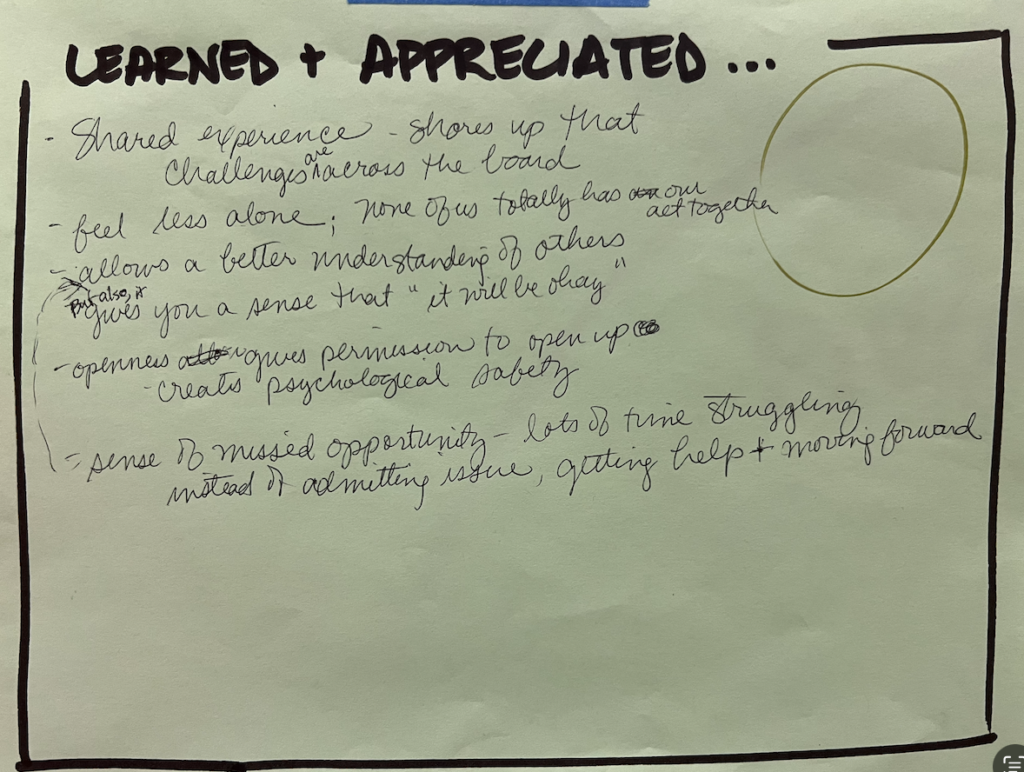 LEARNED + APPRECIATED ...
- Shared experience - shores up that
challenges are across the board
- feel less alone; none of us totally has our
act together
- allows a better understanding of others
But also, it
gives you a sense that "it will be okay"
- openness gives permission to open up
- creates psychological safety
- sense of missed opportunity - lots of time struggling
instead of admitting issue, getting help + moving forward